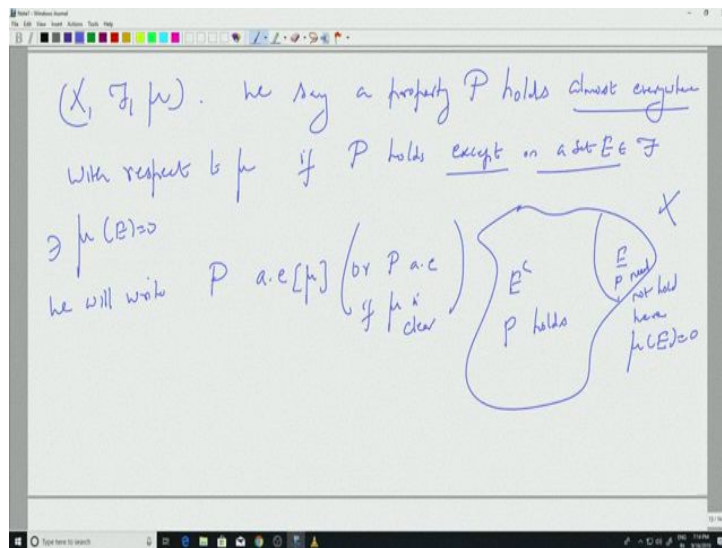 Note1 - Windows Journal
File Edit View Insert Actions Tools Help
(X, ℱ, μ). We say a property P holds almost everywhere
with respect to μ if P holds except on a set E ∈ ℱ
∋ μ(E)=0
We will write P a.e [μ] (or P a.e if μ is clear)
X
E^c
P holds
E
P need
not hold
here
μ(E)=0
Type here to search